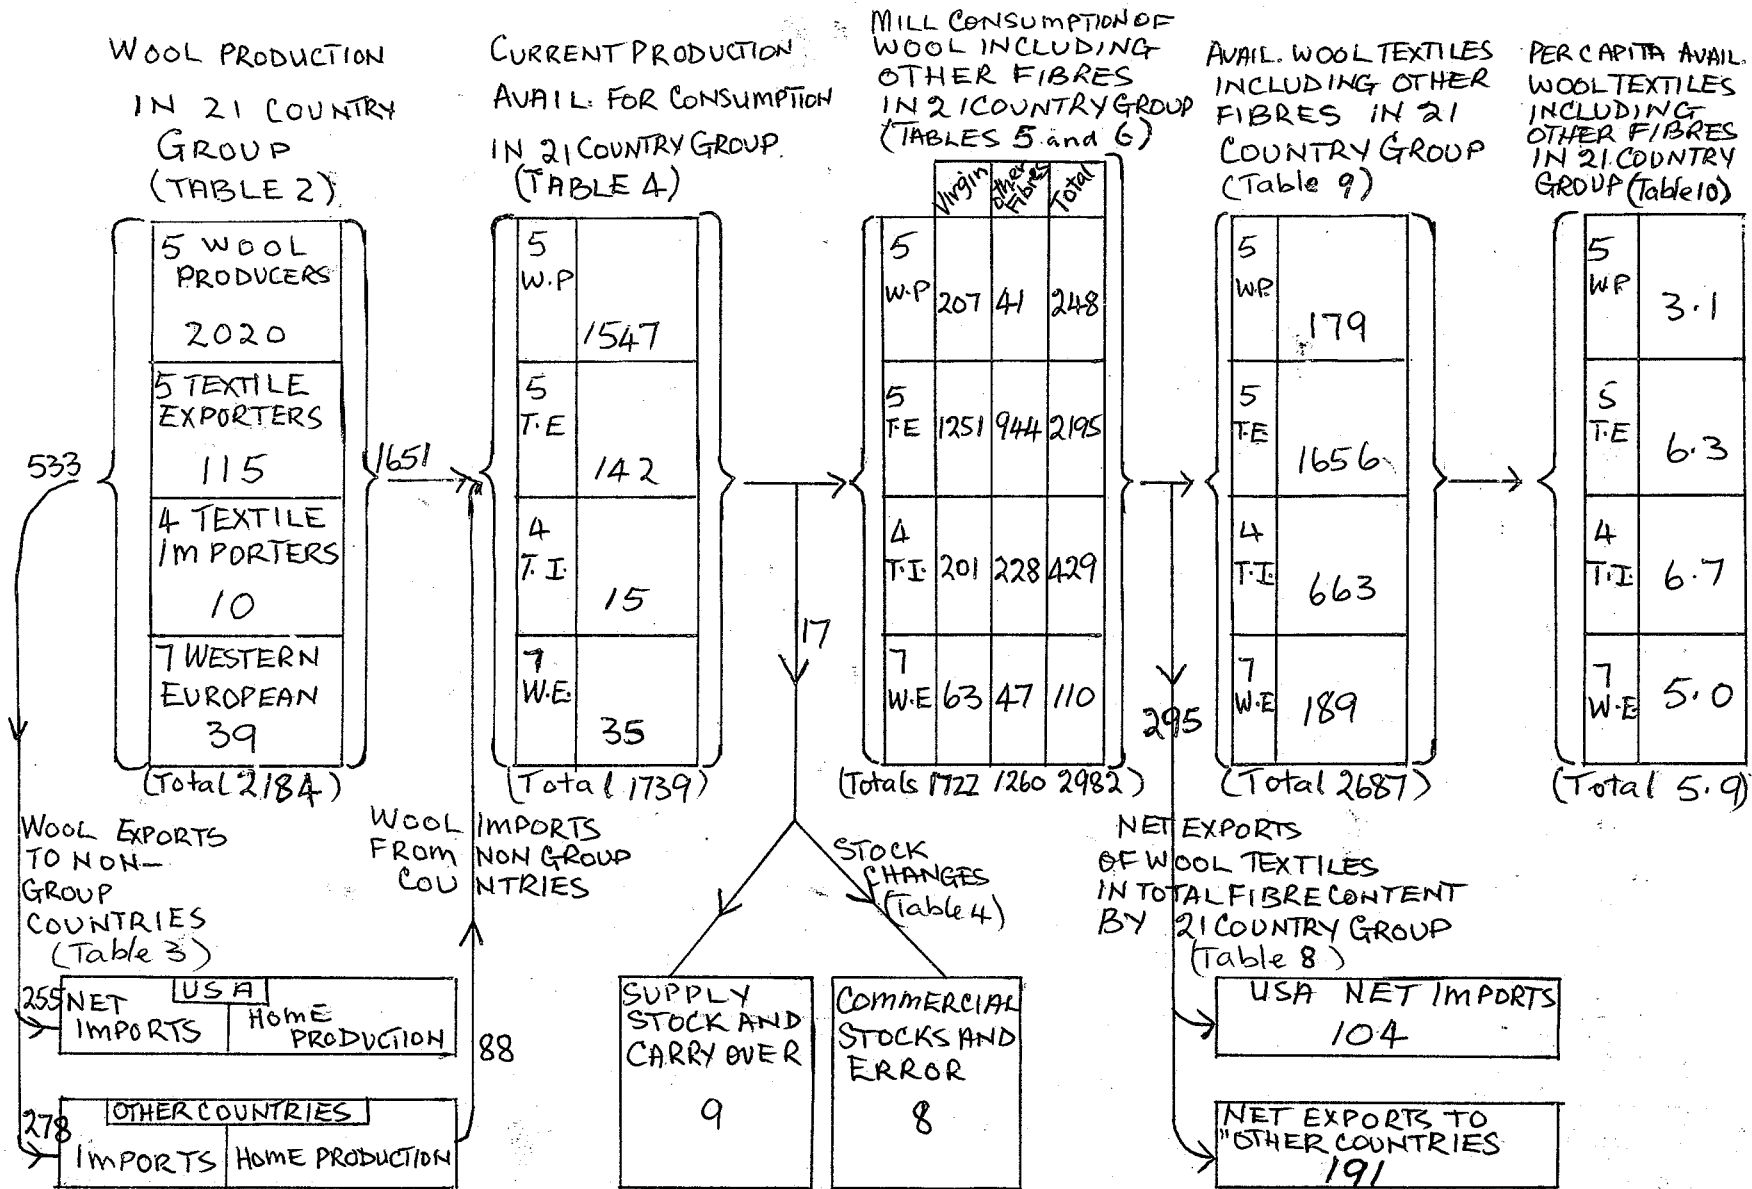 WOOL PRODUCTION
IN 21 COUNTRY
GROUP
(TABLE 2)
5 WOOL
PRODUCERS
2020
5 TEXTILE
EXPORTERS
115
4 TEXTILE
IMPORTERS
10
7 WESTERN
EUROPEAN
39
(Total 2184)
533
1651
CURRENT PRODUCTION
AVAIL. FOR CONSUMPTION
IN 21 COUNTRY GROUP.
(TABLE 4)
5
W.P
1547
5
T.E
142
4
T.I.
15
7
W.E.
35
(Total 1739)
17
MILL CONSUMPTION OF
WOOL INCLUDING
OTHER FIBRES
IN 21 COUNTRY GROUP
(TABLES 5 and 6)
Virgin Other Fibres Total
5
W.P 207 41 248
5
T.E 1251 944 2195
4
T.I. 201 228 429
7
W.E 63 47 110
(Totals 1722 1260 2982)
295
AVAIL. WOOL TEXTILES
INCLUDING OTHER
FIBRES IN 21
COUNTRY GROUP
(Table 9)
5
W.P.
179
5
T.E
1656
4
T.I.
663
7
W.E
189
(Total 2687)
PER CAPITA AVAIL.
WOOL TEXTILES
INCLUDING
OTHER FIBRES
IN 21 COUNTRY
GROUP (Table 10)
5
W.P.
3.1
5
T.E
6.3
4
T.I.
6.7
7
W.E
5.0
(Total 5.9)
WOOL EXPORTS
TO NON-
GROUP
COUNTRIES
(Table 3)
WOOL IMPORTS
FROM NON GROUP
COUNTRIES
88
255
USA
NET
IMPORTS
HOME
PRODUCTION
278
OTHER COUNTRIES
IMPORTS
HOME PRODUCTION
STOCK
CHANGES
(Table 4)
SUPPLY
STOCK AND
CARRY OVER
9
COMMERCIAL
STOCKS AND
ERROR
8
NET EXPORTS
OF WOOL TEXTILES
IN TOTAL FIBRE CONTENT
BY 21 COUNTRY GROUP
(Table 8)
USA NET IMPORTS
104
NET EXPORTS TO
"OTHER COUNTRIES
191